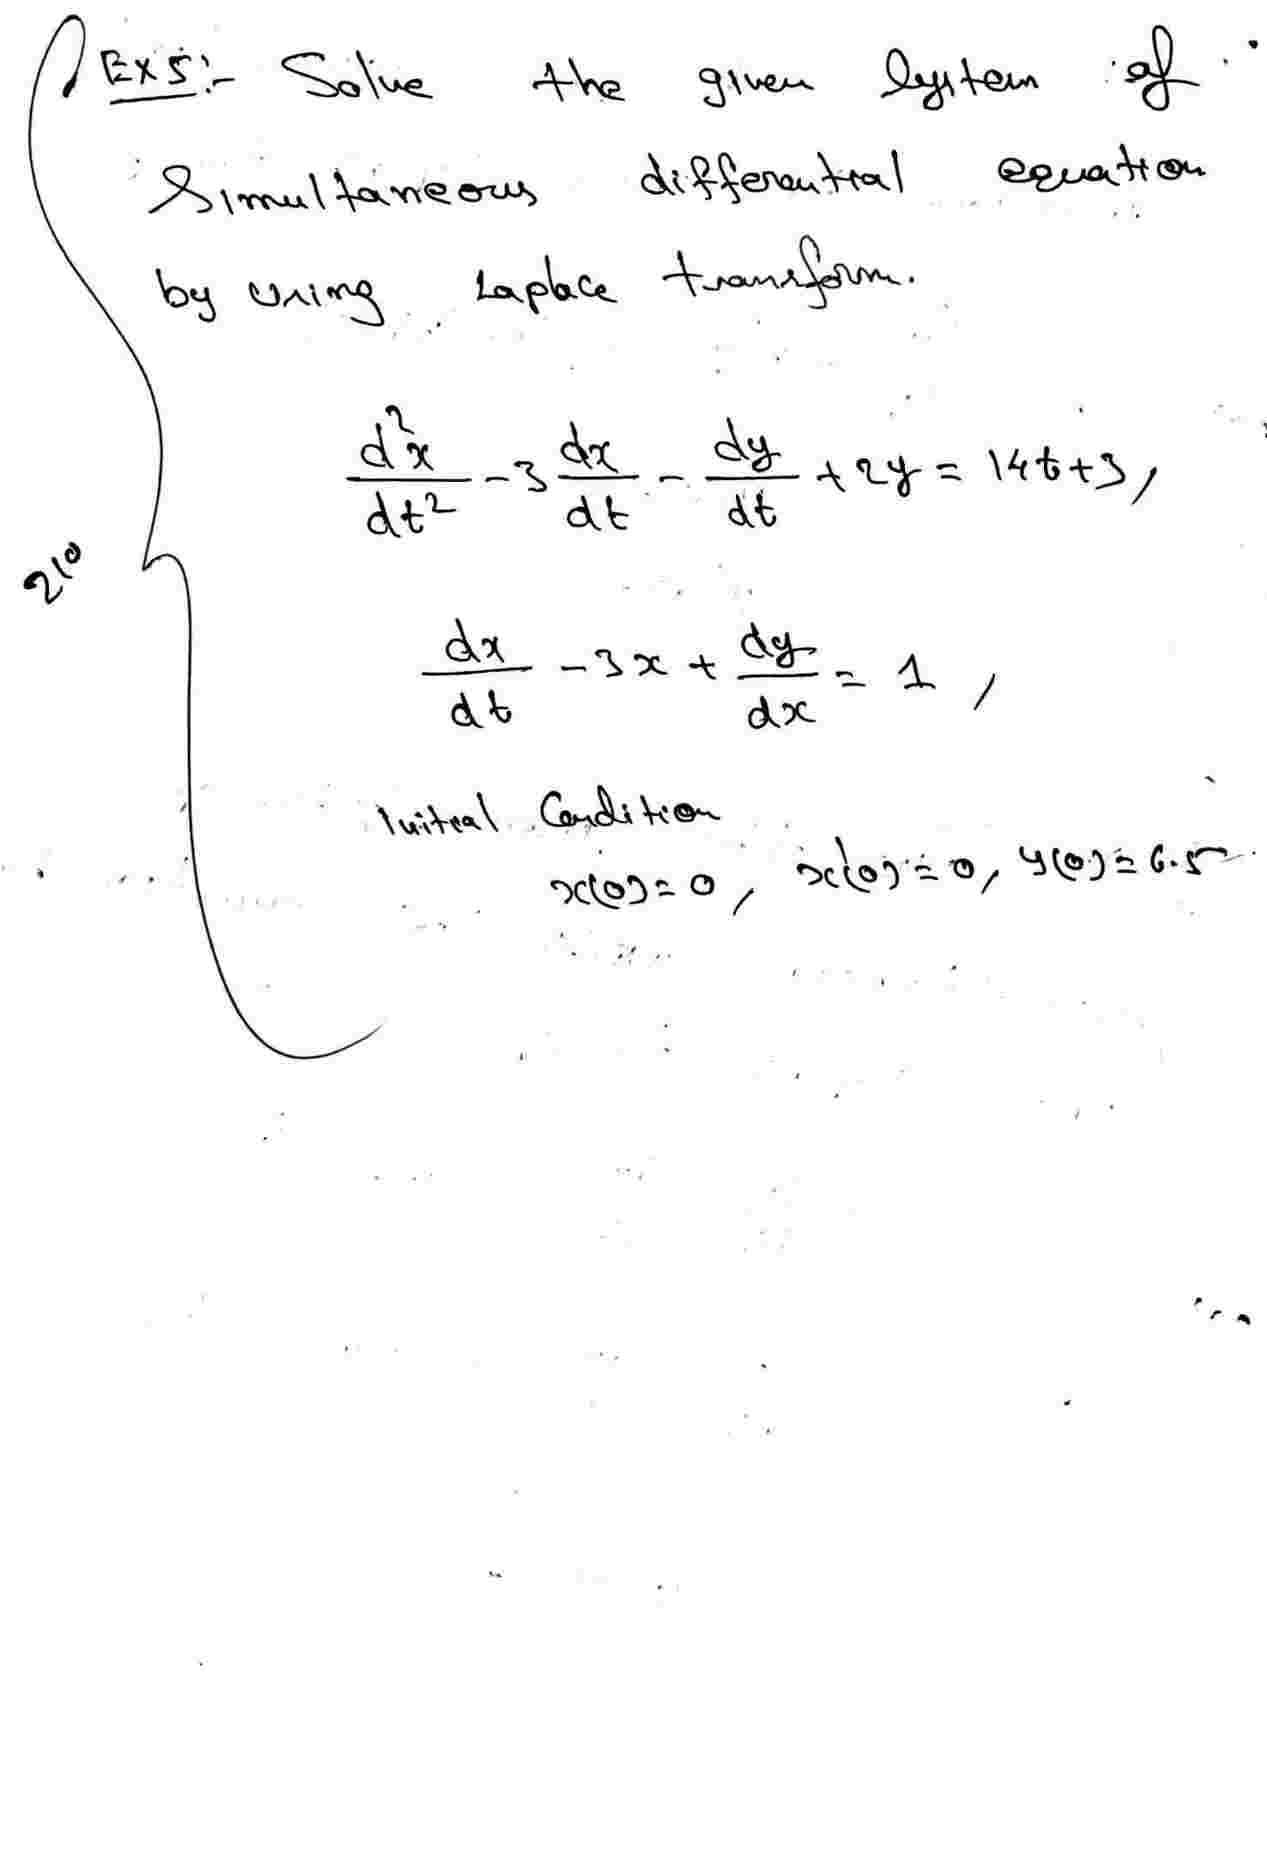 Ex 5:- Solve the given system of
Simultaneous differential equation
by using Laplace transform.
d²x/dt² - 3 dx/dt - dy/dt + 2y = 14t + 3,
210
dx/dt - 3x + dy/dx = 1,
Initial Condition
x(0) = 0, x'(0) = 0, y(0) = 6.5